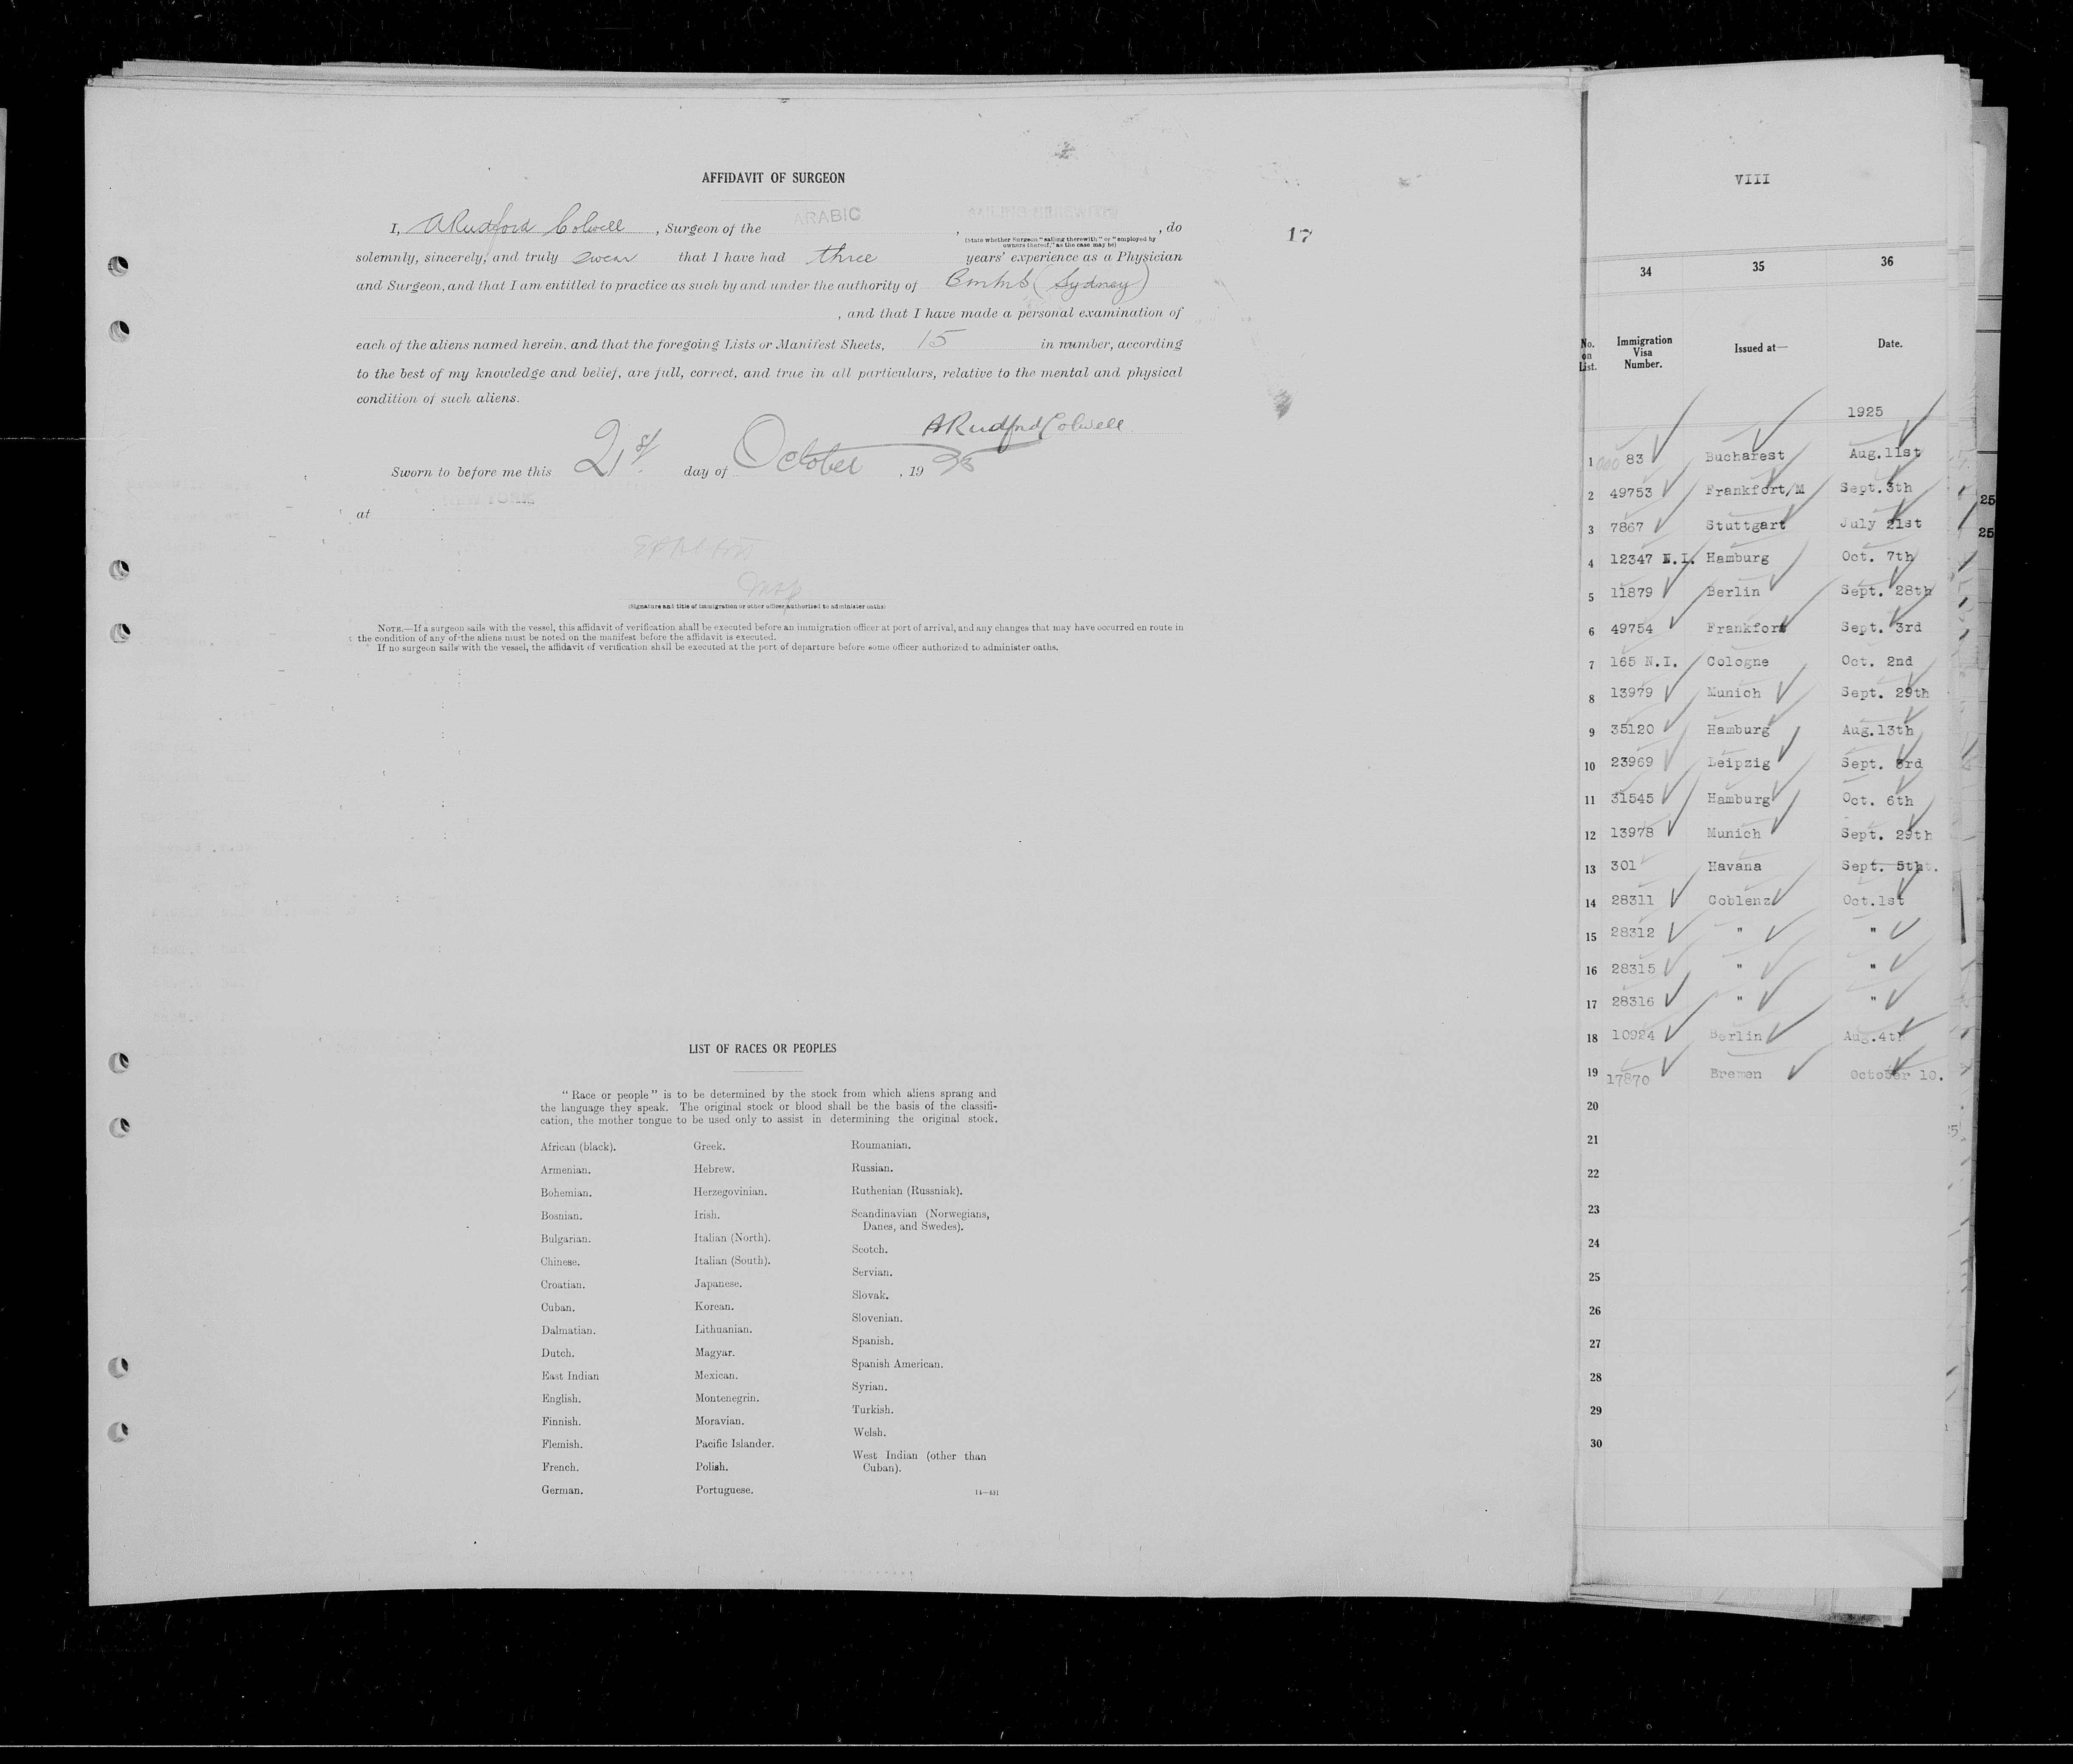 AFFIDAVIT OF SURGEON
I, A Rudford Colwell, Surgeon of the ARABIC, SAILING THEREWITH, do
(State whether Surgeon "sailing therewith" or "employed by
owners thereof," as the case may be)
solemnly, sincerely, and truly swear that I have had three years' experience as a Physician
and Surgeon, and that I am entitled to practice as such by and under the authority of (Sydney)
, and that I have made a personal examination of
each of the aliens named herein. and that the foregoing Lists or Manifest Sheets, 15 in number, according
to the best of my knowledge and belief, are full, correct, and true in all particulars, relative to the mental and physical
condition of such aliens.
A Rudford Colwell
Sworn to before me this 21st day of October, 1925
at NEW YORK
(Signature and title of immigration or other officer authorized to administer oaths)
NOTE.—If a surgeon sails with the vessel, this affidavit of verification shall be executed before an immigration officer at port of arrival, and any changes that may have occurred en route in
the condition of any of the aliens must be noted on the manifest before the affidavit is executed.
If no surgeon sails with the vessel, the affidavit of verification shall be executed at the port of departure before some officer authorized to administer oaths.
17
LIST OF RACES OR PEOPLES
"Race or people" is to be determined by the stock from which aliens sprang and
the language they speak. The original stock or blood shall be the basis of the classifi-
cation, the mother tongue to be used only to assist in determining the original stock.
African (black).
Armenian.
Bohemian.
Bosnian.
Bulgarian.
Chinese.
Croatian.
Cuban.
Dalmatian.
Dutch.
East Indian
English.
Finnish.
Flemish.
French.
German.
Greek.
Hebrew.
Herzegovinian.
Irish.
Italian (North).
Italian (South).
Japanese.
Korean.
Lithuanian.
Magyar.
Mexican.
Montenegrin.
Moravian.
Pacific Islander.
Polish.
Portuguese.
Roumanian.
Russian.
Ruthenian (Russniak).
Scandinavian (Norwegians,
Danes, and Swedes).
Scotch.
Servian.
Slovak.
Slovenian.
Spanish.
Spanish American.
Syrian.
Turkish.
Welsh.
West Indian (other than
Cuban).
14—431
VIII
34 35 36
No. on List. Immigration Visa Number. Issued at— Date.
1925
1 83 Bucharest Aug.11st
2 49753 Frankfort/M Sept.3th
3 7867 Stuttgart July 21st
4 12347 N.I. Hamburg Oct. 7th
5 11879 Berlin Sept. 28th
6 49754 Frankfort Sept. 3rd
7 165 N.I. Cologne Oct. 2nd
8 13979 Munich Sept. 29th
9 35120 Hamburg Aug.13th
10 23969 Leipzig Sept. 3rd
11 31545 Hamburg Oct. 6th
12 13978 Munich Sept. 29th
13 301 Havana Sept. 5th.
14 28311 Coblenz Oct.1st
15 28312 " "
16 28315 " "
17 28316 " "
18 10924 Berlin Aug.4th
19 17870 Bremen October 10.
20
21
22
23
24
25
26
27
28
29
30
25
25